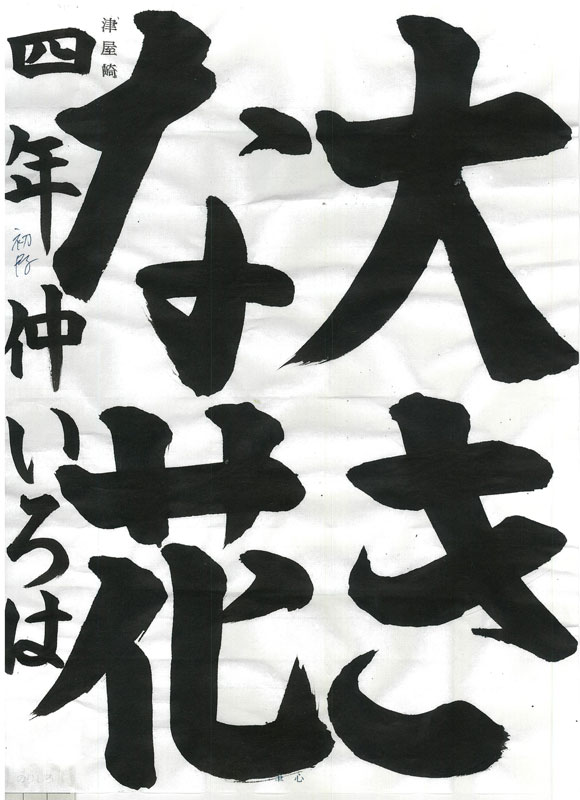 大き
な花
津屋崎
四年 仲いろは
初段